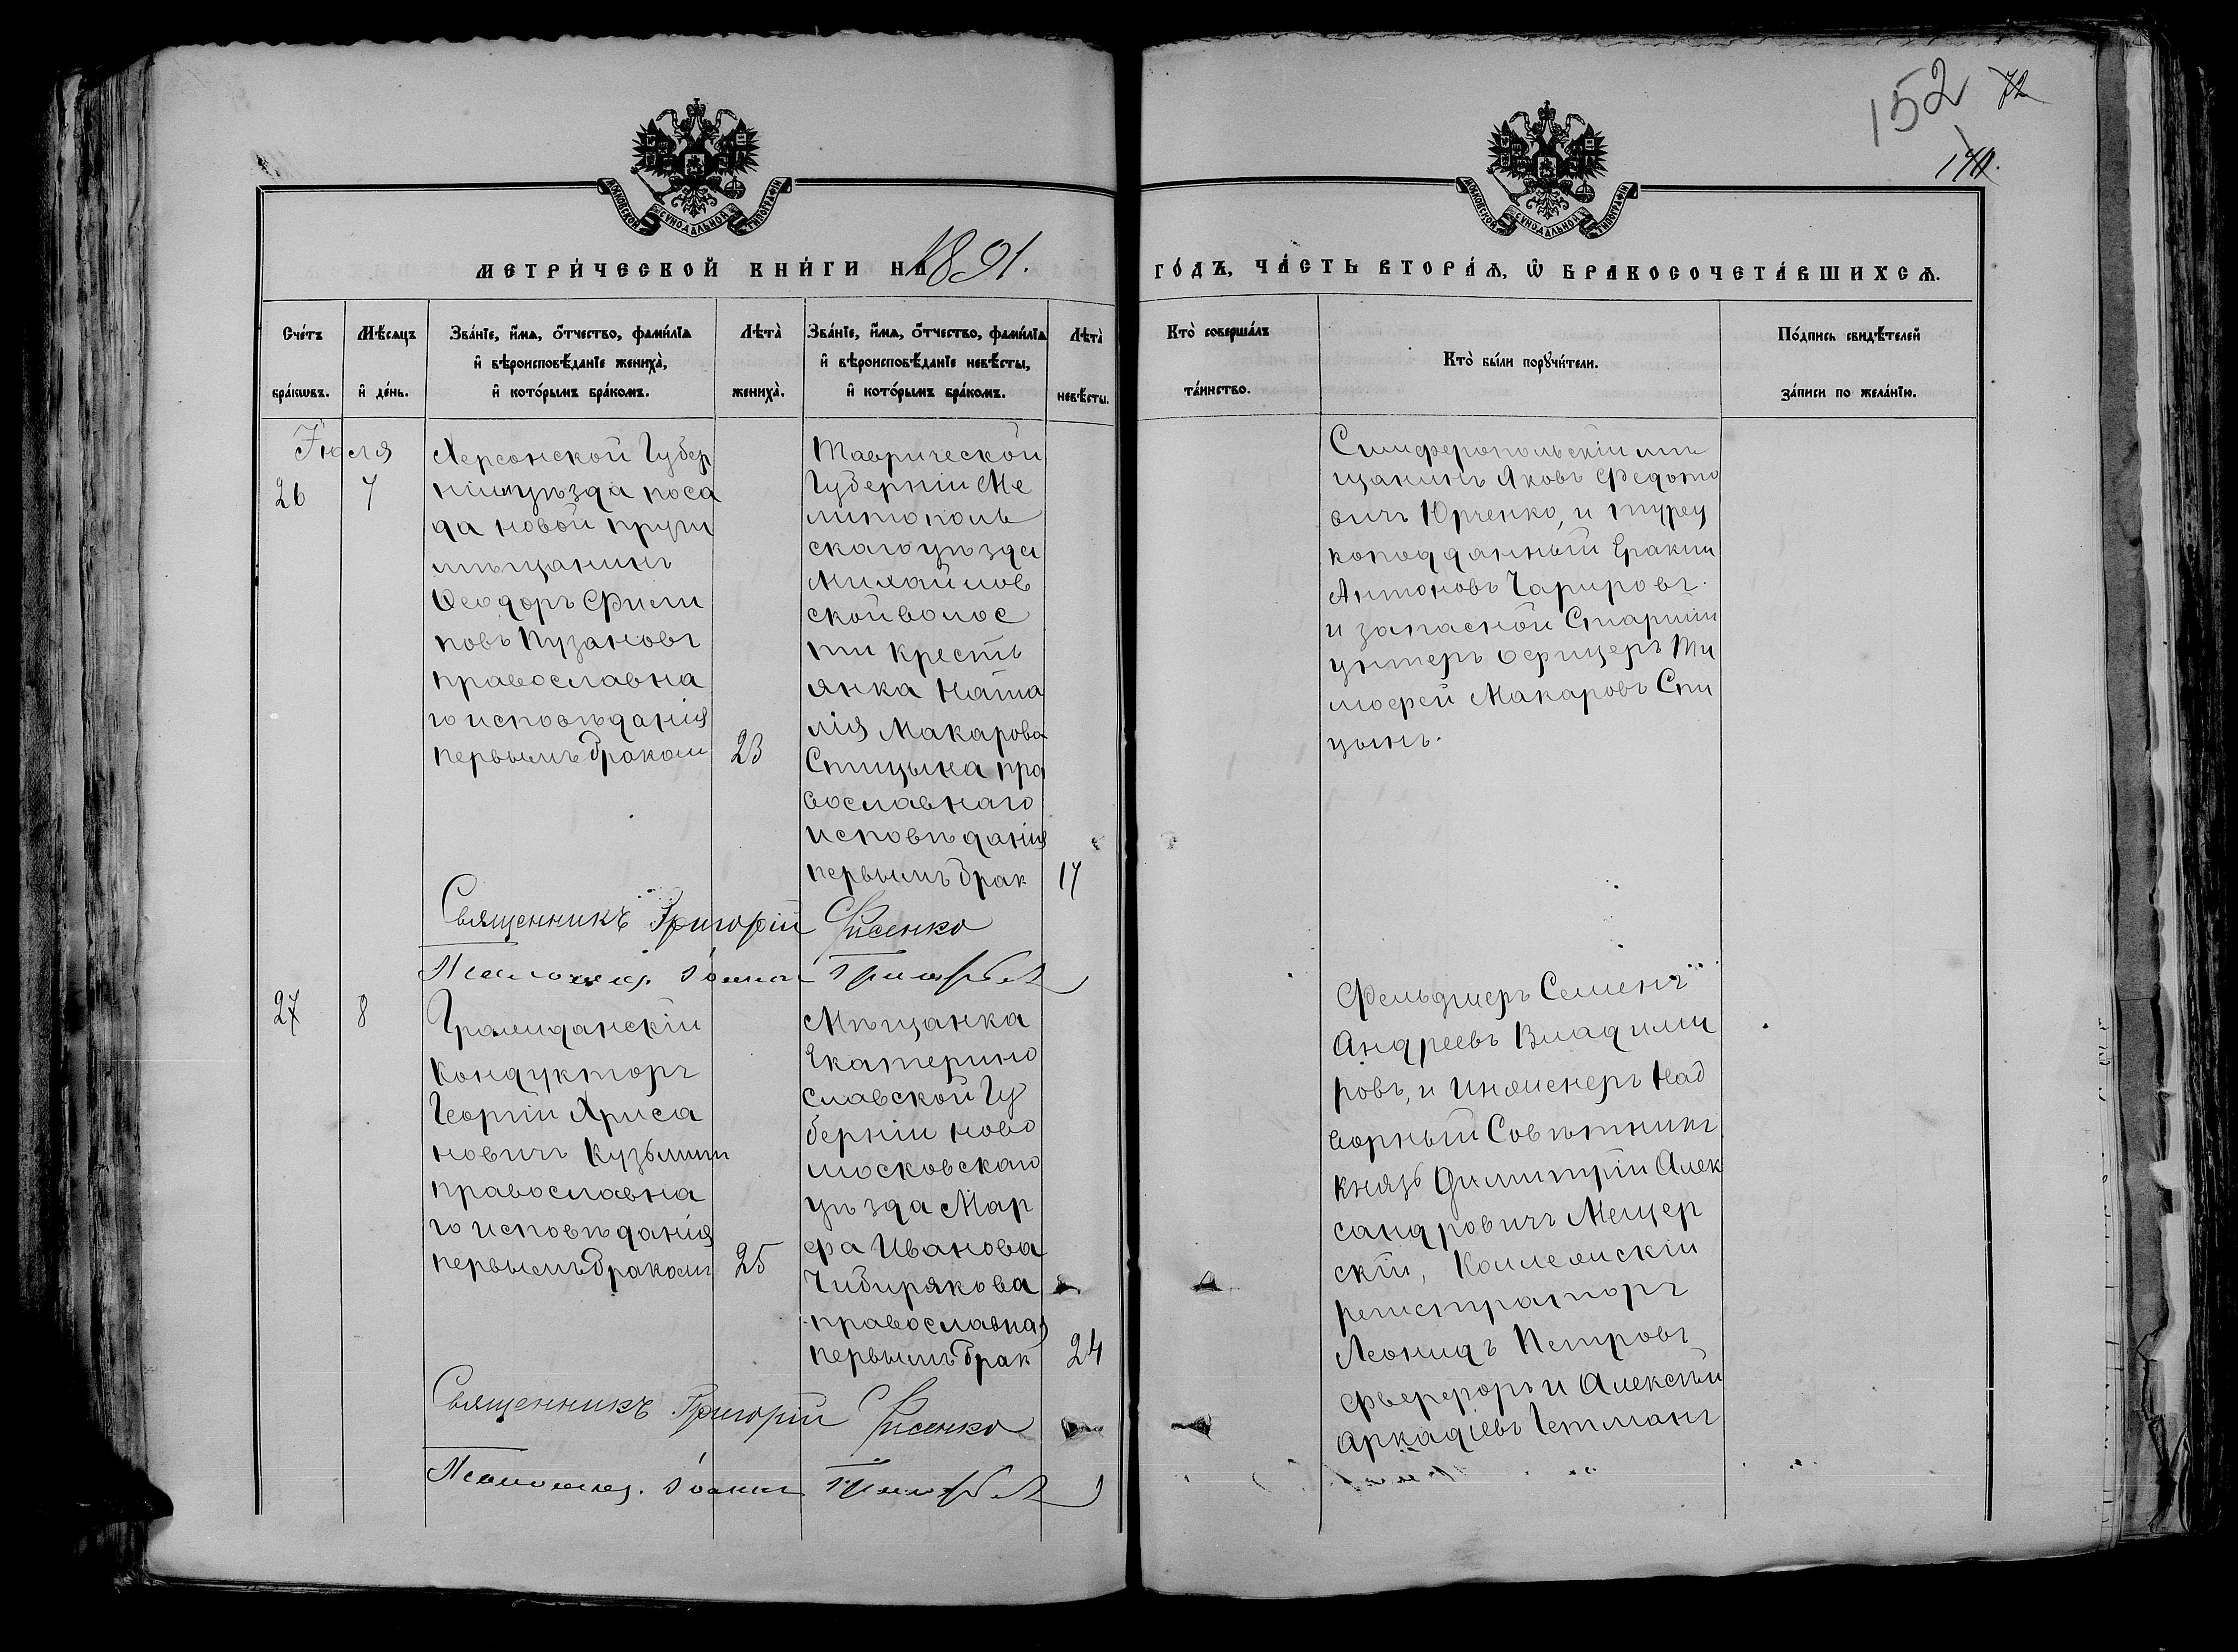 152 72
МОСКОВСКОЙ СѴНОДАЛЬНОЙ ТИПОГРАФІИ
МОСКОВСКОЙ СѴНОДАЛЬНОЙ ТИПОГРАФІИ
МЕТРИ́ЧЕСКОЙ КНИ́ГИ НА 1891.
ГО́ДЪ, ЧА́СТЬ ВТОРА́Ѧ, Ѡ҆ БРАКОСОЧЕТА́ВШИХСѦ.
Сче́тъ
бра́кѡвъ.
Мѣ́сѧцъ
и҆ де́нь.
Зва́нїе, и҆́мѧ, ѻ҆́тчество, фами́лїѧ
и҆ вѣроисповѣ́данїе жениха̀,
и҆ кото́рымъ бра́комъ.
Лѣта̀
жениха̀.
Зва́нїе, и҆́мѧ, ѻ҆́тчество, фами́лїѧ
и҆ вѣроисповѣ́данїе невѣ́сты,
и҆ кото́рымъ бра́комъ.
Лѣта̀
невѣ́сты.
Кто̀ соверша́лъ
та́инство.
Кто̀ бы́ли порꙋчи́тели.
По́дпись свидѣ́телей
за́писи по жела́нїю.
Іюля
26
7
Херсонской Губер
ніи уѣзда поса
да новой Праги
мѣщанинъ
Ѳеодоръ Филип
повъ Пузановъ
православна
го исповѣданія
первымъ бракомъ
23
Таврической
Губерніи Ме
литополь
скаго уѣзда
Михайлов
ской волос
ти кресть
янка Ната
лія Макарова
Спицына пра
вославнаго
исповѣданія
первымъ брак
17
Симферопольскій мѣ
щанинъ Яковъ Федото
вичъ Юрченко, и турец
коподданный Ераким
Антоновъ Чарировъ.
и запасной Старшій
унтеръ офицеръ Ти
мофей Макаровъ Спи
цынъ.
Священникъ Григорій
27
8
Гражданскій
Кондукторъ
Георгій Хриса
новичъ Кузьмин
православна
го исповѣданія
первымъ бракомъ
25
Мѣщанка
Екатерино
славской Гу
берніи ново
московскаго
уѣзда Мар
фа Иванова
Чибирякова
православная
первымъ брак
24
Фельдшеръ Семенъ
Андреевъ Владими
ровъ, и Инженеръ Над
ворный Совѣтникъ
князь Димитрій Алек
сандровичъ Мещер
скій, Коллежскій
регистраторъ
Леонидъ Петровъ
и Алексѣй
Аркадіевъ Гетманъ
Священникъ Григорій